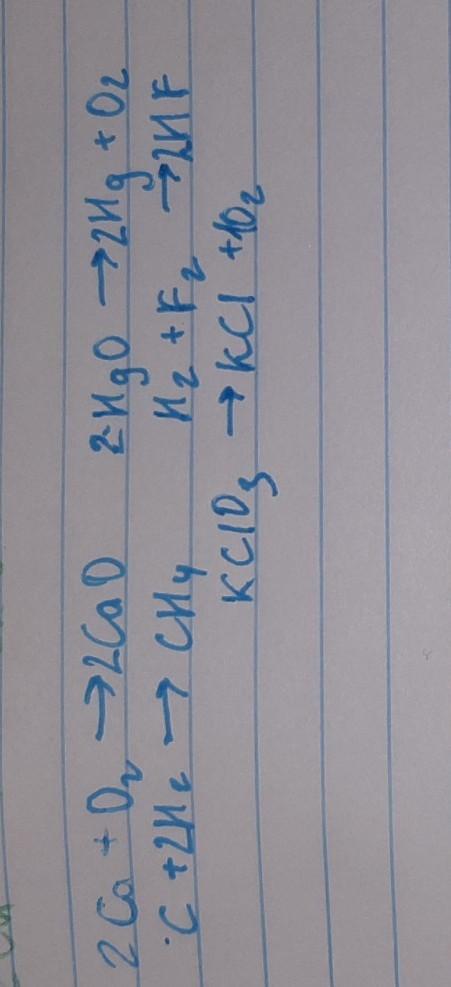 2Ca + O₂ → 2CaO 2HgO → 2Hg + O₂
C + 2H₂ → CH₄ H₂ + F₂ → 2HF
KClO₃ → KCl + O₂